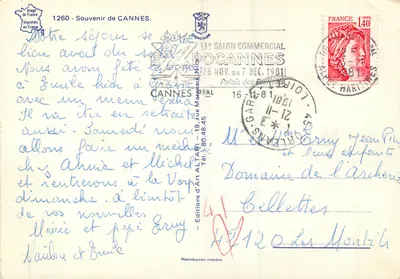 1260 - Souvenir de CANNES.
Image de France
Imprimée en France
Notre séjour se passe
bien avec du soleil
Nous avons fêté
à Emile hier à
avec un menu
Il va être en retraite
aussi. Samedi nous
allons faire un
chez Annie et Michel
et rentrerons à la
dimanche. à bientôt
de vos nouvelles
Mémé et pépé Erny
et Emile
Editions d'Art ALTARI
Tél.: 80.48.45
Reproduction interdite
13e SALON COMMERCIAL
ROCANNES
(28 NOV. au 7 DEC. 1981)
Palais des
CANNES PPAL 16-11-81
FRANCE
1,40
ALPES MARITIMES
45 ORLEANS-GARE LOIRET
21-11
1981
M. et Mme Erny Jean
et leurs enfants
Domaine de l'
Cellettes
41120 Les Montils